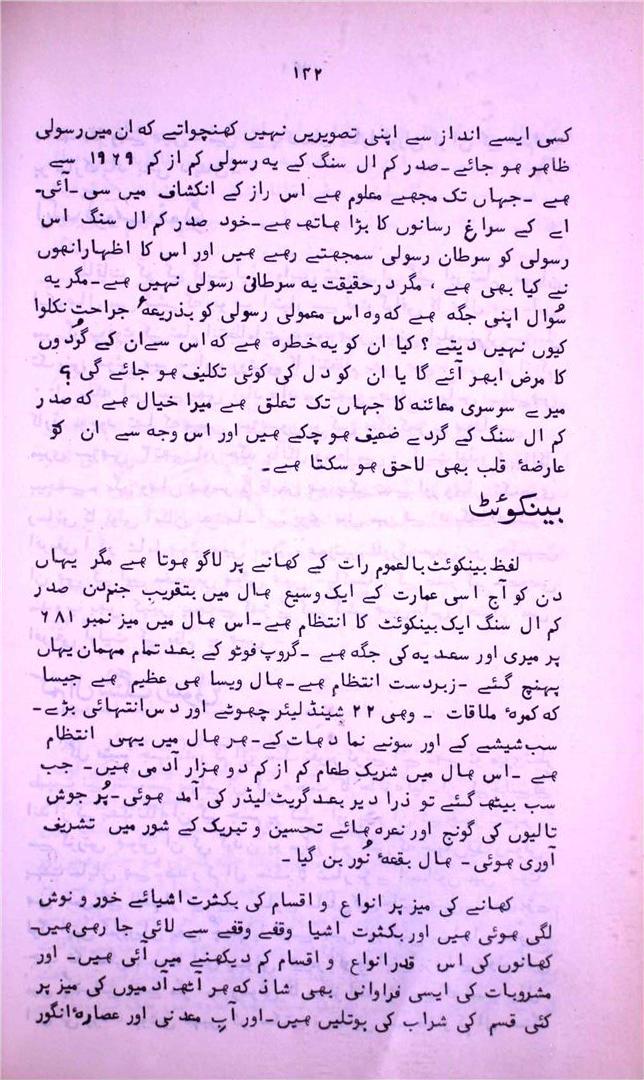 ۱۴۲
کسی ایسے انداز سے اپنی تصویریں نہیں کھنچواتے کہ ان میں رسولی
ظاہر ہو جائے۔ صدر کم ال سنگ کے یہ رسولی کم از کم ۱۹۶۹ سے
ہے ۔ جہاں تک مجھے معلوم ہے اس راز کے انکشاف میں سی۔آئی۔
اے کے سراغ رسانوں کا بڑا ہاتھ ہے۔ خود صدر کم ال سنگ اس
رسولی کو سرطان رسولی سمجھتے رہے ہیں اور اس کا اظہار انھوں
نے کیا بھی ہے ، مگر درحقیقت یہ سرطانی رسولی نہیں ہے۔ مگر یہ
سُوال اپنی جگہ ہے کہ وہ اس معمولی رسولی کو بذریعۂ جراحت نکلوا
کیوں نہیں دیتے ؟ کیا ان کو یہ خطرہ ہے کہ اس سے ان کے گُردوں
کا مرض ابھر آئے گا یا ان کو دل کی کوئی تکلیف ہو جائے گی ؟
میرے سوسری معائنہ کا جہاں تک تعلق ہے میرا خیال ہے کہ صدر
کم ال سنگ کے گردے ضعیف ہو چکے ہیں اور اس وجہ سے ان کو
عارضۂ قلب بھی لاحق ہو سکتا ہے۔
بینکوئٹ
لفظ بینکوئٹ بالعموم رات کے کھانے پر لاگو ہوتا ہے مگر یہاں
دن کو آج اسی عمارت کے ایک وسیع ہال میں بتقریب جنم دن صدر
کم ال سنگ ایک بینکوئٹ کا انتظام ہے۔ اس ہال میں میز نمبر ۶۸۱
پر میری اور سعدیہ کی جگہ ہے ۔ گروپ فوٹو کے بعد تمام مہمان یہاں
پہنچ گئے ۔ زبردست انتظام ہے۔ ہال ویسا ہی عظیم ہے جیسا
کہ کمرۂ ملاقات ۔ وہی ۲۲ شینڈلیئر چھوٹے اور دس انتہائی بڑے۔
سب شیشے کے اور سونے نما دھات کے۔ ہر ہال میں یہی انتظام
ہے ۔ اس ہال میں شریک طعام کم از کم دو ہزار آدمی ہیں۔ جب
سب بیٹھ گئے تو ذرا دیر بعد گریٹ لیڈر کی آمد ہوئی۔ پُر جوش
تالیوں کی گونج اور نعرہ ہائے تحسین و تبریک کے شور میں تشریف
آوری ہوئی۔ ہال بقعۂ نُور بن گیا ۔
کھانے کی میز پر انواع و اقسام کی بکثرت اشیائے خور و نوش
لگی ہوئی ہیں اور بکثرت اشیا وقفے وقفے سے لائی جا رہی ہیں۔
کھانوں کی اس قدر انواع و اقسام کم دیکھنے میں آئی ہیں۔ اور
مشروبات کی ایسی فراوانی بھی شاذ کہ ہر آٹھ آدمیوں کی میز پر
کئی قسم کی شراب کی بوتلیں ہیں۔ اور آبِ معدنی اور عصارۂ انگور